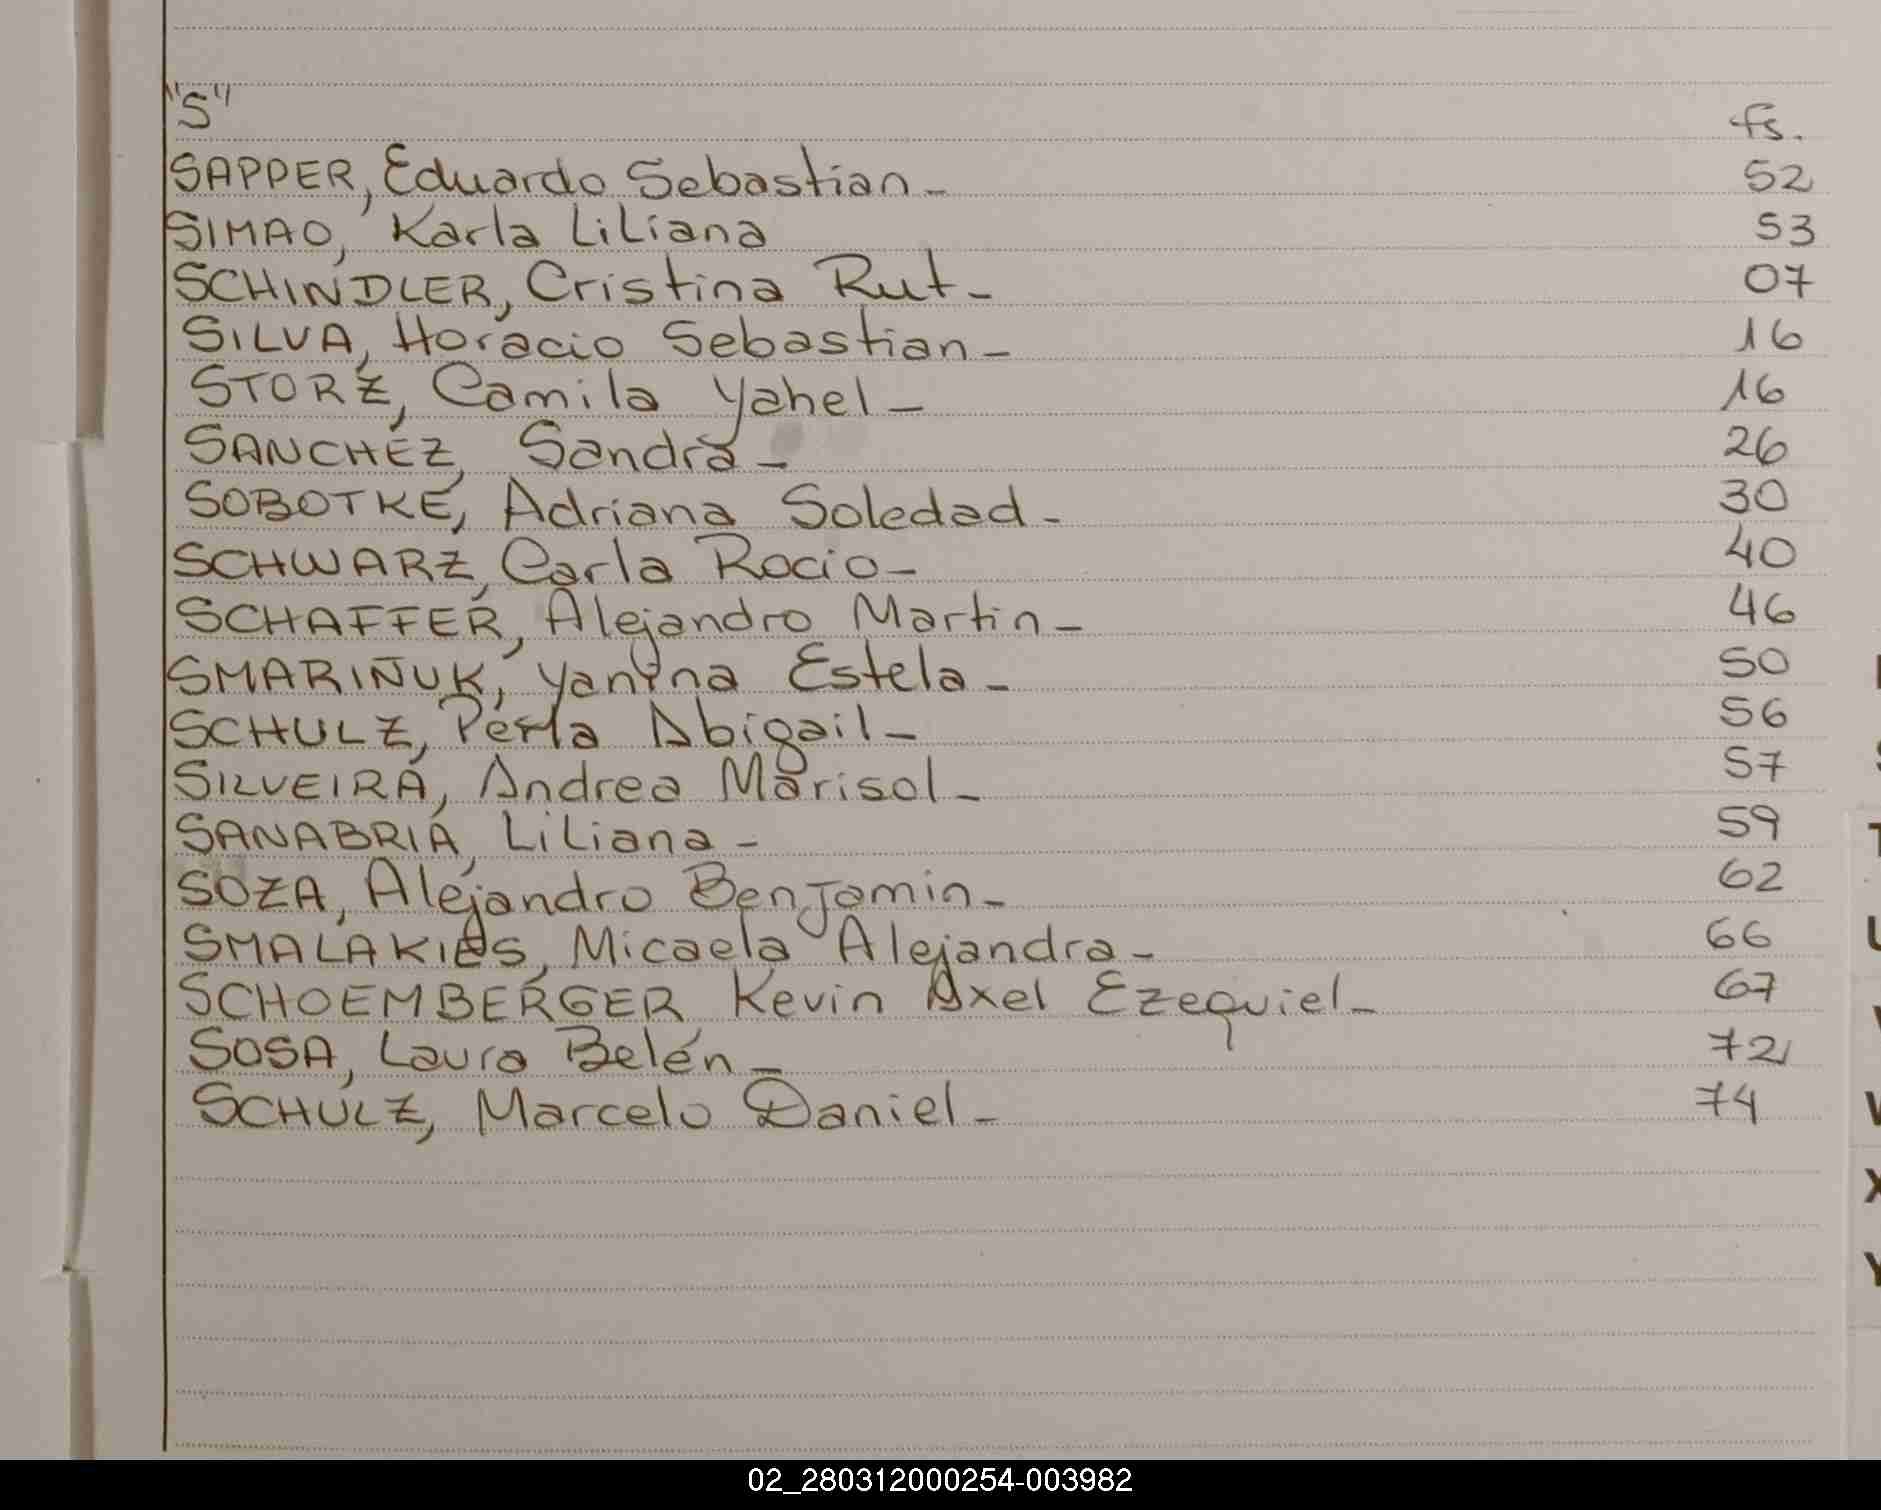 "S"
fs.
SAPPER, Eduardo Sebastian - 52
SIMAO, Karla Liliana 53
SCHINDLER, Cristina Rut - 07
SILVA, Horacio Sebastian - 16
STORZ, Camila Yahel - 16
SANCHEZ, Sandra - 26
SOBOTKE, Adriana Soledad - 30
SCHWARZ, Carla Rocio - 40
SCHAFFER, Alejandro Martin - 46
SMARIÑUK, Yanina Estela - 50
SCHULZ, Perla Abigail - 56
SILVEIRA, Andrea Marisol - 57
SANABRIA, Liliana - 59
SOZA, Alejandro Benjamin - 62
SMALAKIES, Micaela Alejandra - 66
SCHOEMBERGER Kevin Axel Ezequiel - 67
SOSA, Laura Belén - 72
SCHULZ, Marcelo Daniel - 74
T
U
V
W
X
Y
02_280312000254-003982